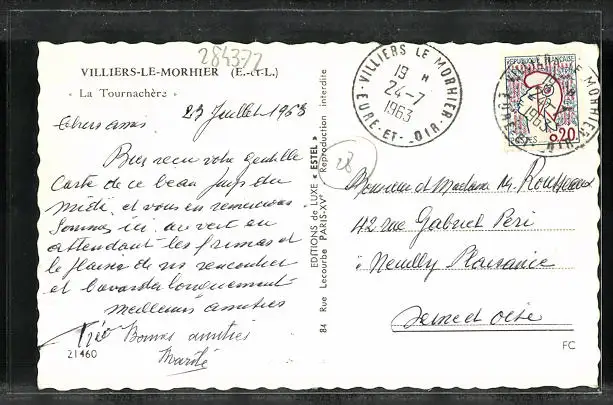 284372
VILLIERS-LE-MORHIER (E.-et-L.)
" La Tournachère "
23 Juillet 1963
Chers amis
Bien reçu votre gentille
Carte de ce beau Pays du
midi, et vous en remercions
Sommes ici, au vert en
attendant les frimas et
le plaisir de vs rencontrer
et bavarder longuement
Meilleures amitiés
Bonnes amitiés
21460
84 Rue Lecourbe PARIS-XVe Reproduction interdite
EDITIONS de LUXE « ESTEL »
VILLIERS LE MORHIER
19 H
24-7
1963
EURE-ET-LOIR
28
REPUBLIQUE FRANÇAISE
POSTES 0,20
1963
Monsieur et Madame M. Rousseau
42 rue Gabriel Péri
à Neuilly Plaisance
Seine et Oise
FC